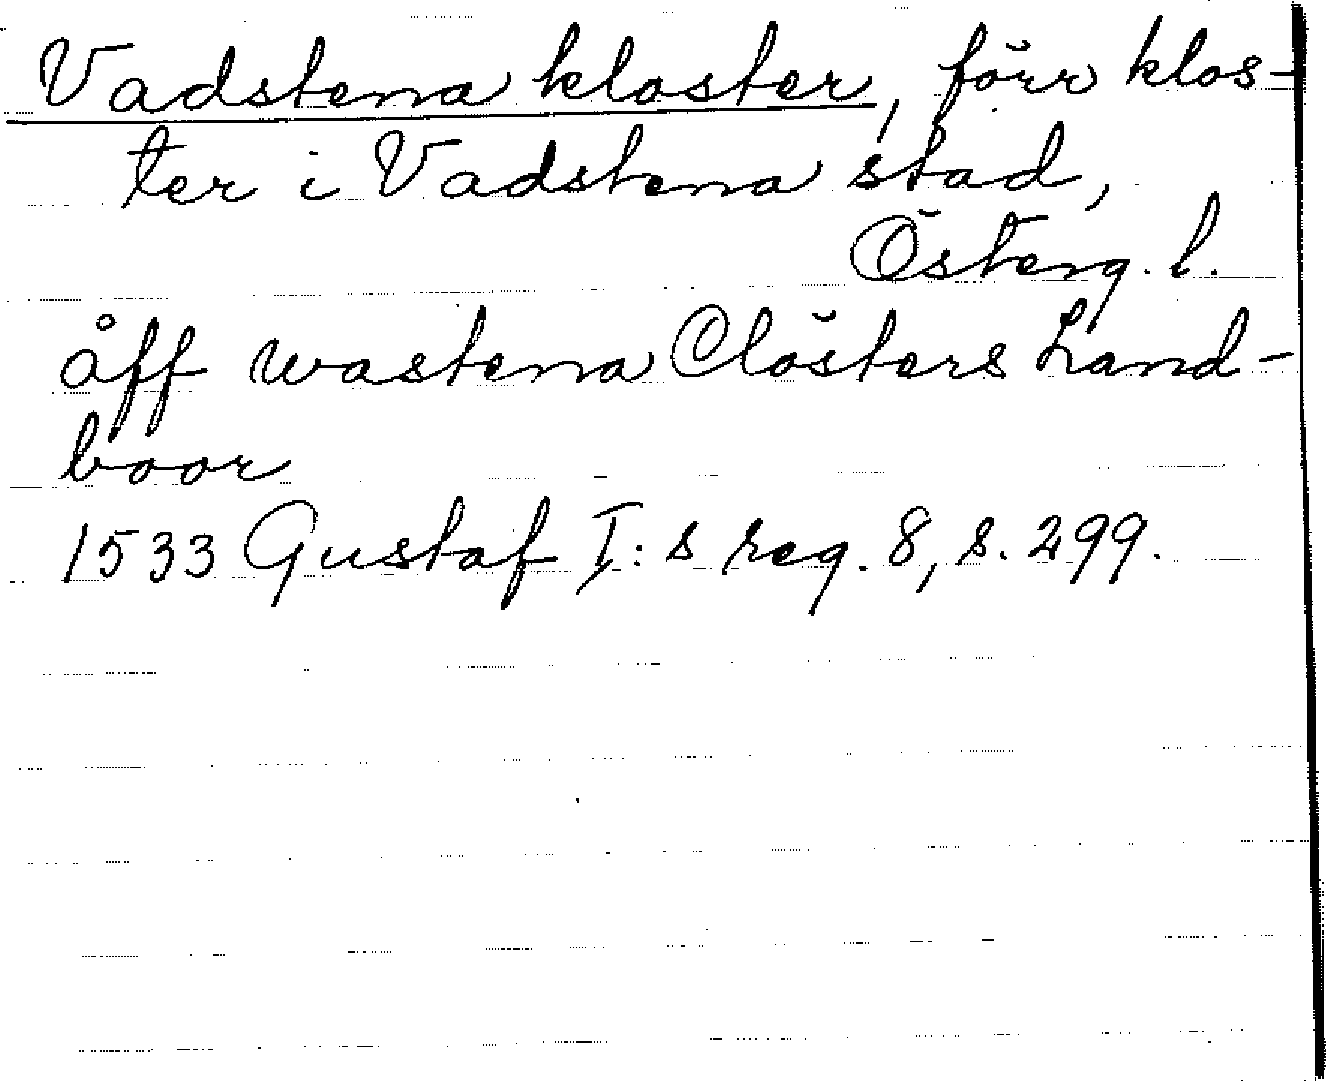 Vadstena kloster, förr klos-
ter i Vadstena stad,
Österg. l.
åff wastena Clösters Land-
boor
1533 Gustaf I:s reg. 8, s. 299.